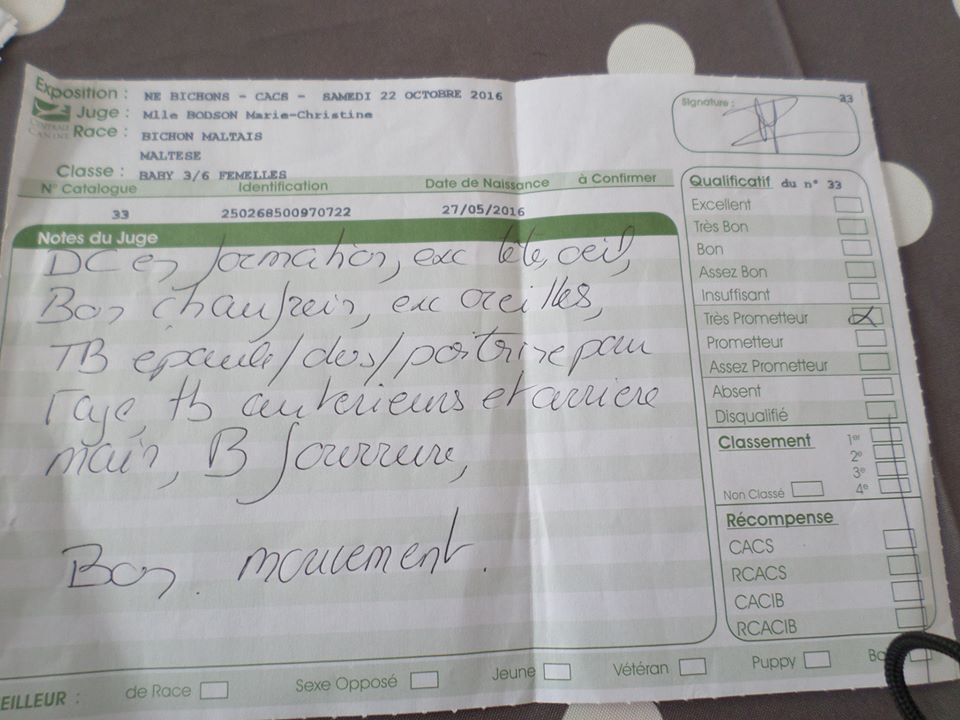 Exposition : NE BICHONS - CACS - SAMEDI 22 OCTOBRE 2016
Juge : Mlle BODSON Marie-Christine
CENTRALE CANINE
Race : BICHON MALTAIS
MALTESE
Classe : BABY 3/6 FEMELLES
Signature : 33
N° Catalogue Identification Date de Naissance à Confirmer
33 250268500970722 27/05/2016
Notes du Juge
DC en formation, exc tête, oeil,
Bon chanfrein, exc oreilles,
TB epaule/dos/poitrine pour
l'age, tb anterieurs et arriere
main, B fourrure,
Bon mouvement.
Qualificatif du n° 33
Excellent
Très Bon
Bon
Assez Bon
Insuffisant
Très Prometteur X
Prometteur
Assez Prometteur
Absent
Disqualifié
Classement 1er
2e
3e
Non Classé 4e
Récompense
CACS
RCACS
CACIB
RCACIB
EILLEUR : de Race Sexe Opposé Jeune Vétéran Puppy Ba